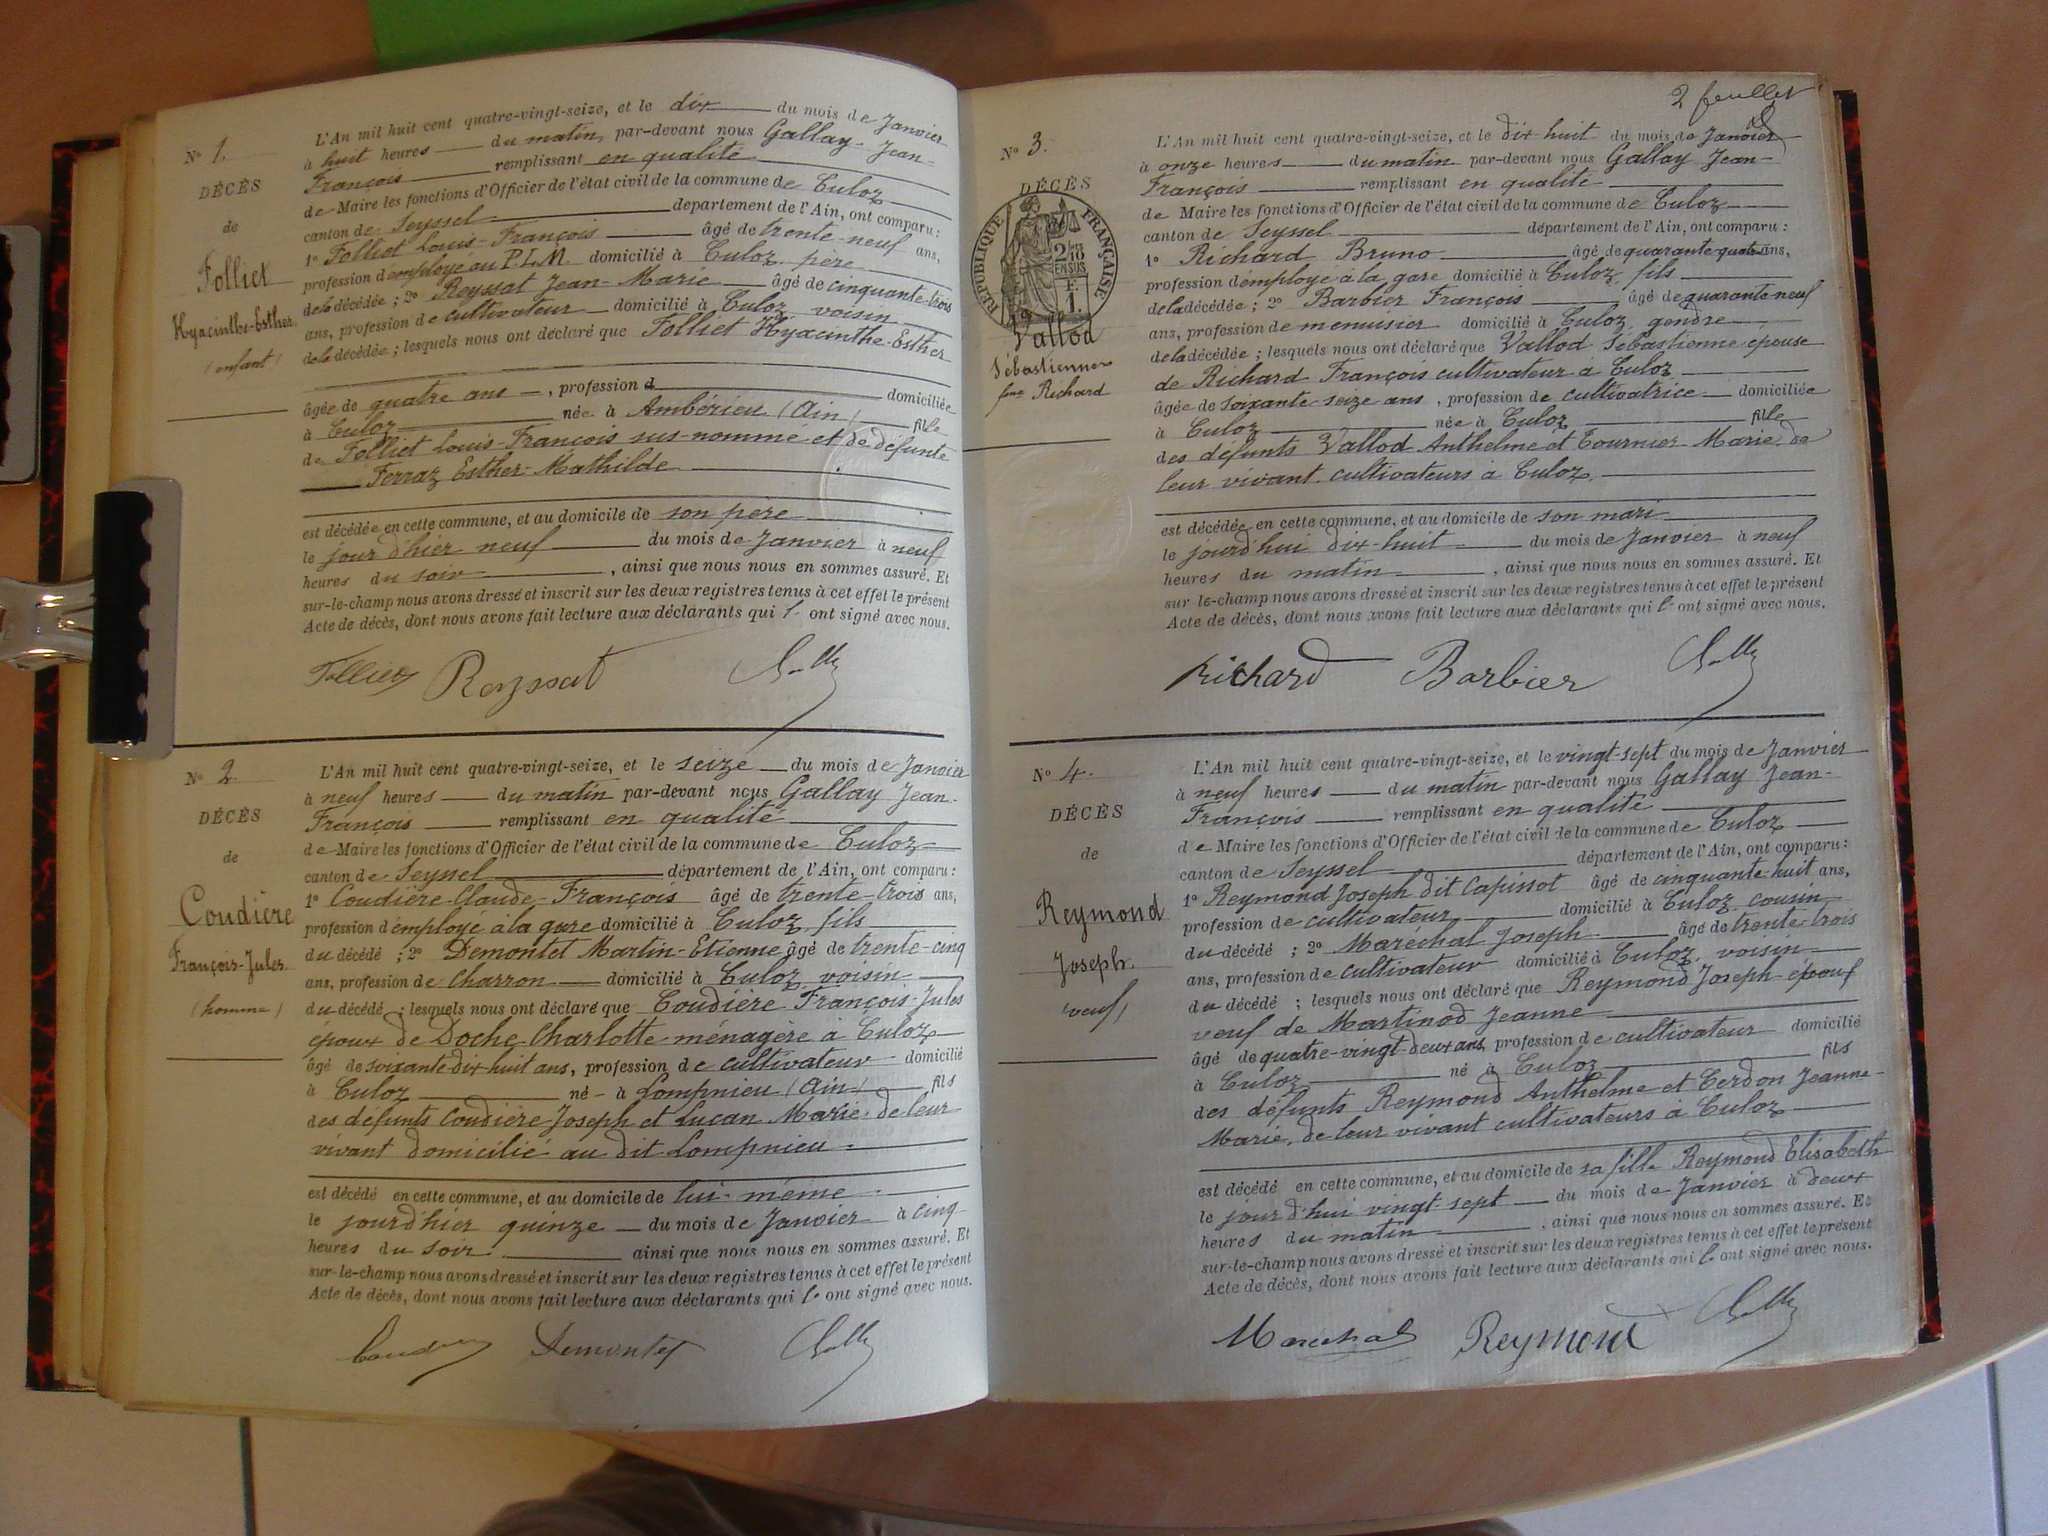 N° 1.
DÉCÈS
de
Folliet
Hyacinthe-Esther
(enfant)
L'An mil huit cent quatre-vingt-seize, et le dix du mois de Janvier
à huit heures du matin, par-devant nous Gallay Jean-
François remplissant en qualité
de Maire les fonctions d'Officier de l'état civil de la commune de Culoz
canton de Seyssel département de l'Ain, ont comparu :
1° Folliet Louis-François âgé de trente-neuf ans,
profession d'employé au P.L.M. domicilié à Culoz, père
de la décédée ; 2° Reyssat Jean-Marie âgé de cinquante-trois
ans, profession de cultivateur domicilié à Culoz, voisin
de la décédée ; lesquels nous ont déclaré que Folliet Hyacinthe-Esther
âgée de quatre ans, profession d domiciliée
à Culoz née à Ambérieu (Ain) fille
de Folliet Louis-François sus-nommé et de défunte
Ferraz Esther-Mathilde
est décédée en cette commune, et au domicile de son père
le jour d'hier neuf du mois de Janvier à neuf
heures du soir, ainsi que nous nous en sommes assuré. Et
sur-le-champ nous avons dressé et inscrit sur les deux registres tenus à cet effet le présent
Acte de décès, dont nous avons fait lecture aux déclarants qui l' ont signé avec nous.
Folliet Reyssat
N° 2.
DÉCÈS
de
Coudière
François-Jules
(homme)
L'An mil huit cent quatre-vingt-seize, et le seize du mois de Janvier
à neuf heures du matin par-devant nous Gallay Jean-
François remplissant en qualité
de Maire les fonctions d'Officier de l'état civil de la commune de Culoz
canton de Seyssel département de l'Ain, ont comparu :
1° Coudière Claude-François âgé de trente-trois ans,
profession d'employé à la gare domicilié à Culoz, fils
du décédé ; 2° Demontet Martin-Etienne âgé de trente-cinq
ans, profession de charron domicilié à Culoz, voisin
du décédé ; lesquels nous ont déclaré que Coudière François-Jules
époux de Doche Charlotte ménagère à Culoz
âgé de soixante-dix-huit ans, profession de cultivateur domicilié
à Culoz né à Lompnieu (Ain) fils
des défunts Coudière Joseph et Luçan Marie, de leur
vivant domicilié au dit Lompnieu
est décédé en cette commune, et au domicile de lui-même
le jour d'hier quinze du mois de Janvier à cinq
heures du soir ainsi que nous nous en sommes assuré. Et
sur-le-champ nous avons dressé et inscrit sur les deux registres tenus à cet effet le présent
Acte de décès, dont nous avons fait lecture aux déclarants qui l' ont signé avec nous.
Demontet
2 feuillet
N° 3.
DÉCÈS
RÉPUBLIQUE FRANÇAISE
Vallod
Sébastienne
fme Richard
L'An mil huit cent quatre-vingt-seize, et le dix-huit du mois de Janvier
à onze heures du matin par-devant nous Gallay Jean-
François remplissant en qualité
de Maire les fonctions d'Officier de l'état civil de la commune de Culoz
canton de Seyssel département de l'Ain, ont comparu :
1° Richard Bruno âgé de quarante-quatre ans,
profession d'employé à la gare domicilié à Culoz, fils
de la décédée ; 2° Barbier François âgé de quarante neuf
ans, profession de menuisier domicilié à Culoz, gendre
de la décédée ; lesquels nous ont déclaré que Vallod Sébastienne épouse
de Richard François cultivateur à Culoz
âgée de soixante-seize ans, profession de cultivatrice domiciliée
à Culoz née à Culoz fille
des défunts Vallod Anthelme et Tournier Marie, de
leur vivant cultivateurs à Culoz
est décédée en cette commune, et au domicile de son mari
le jourd'hui dix-huit du mois de Janvier à neuf
heures du matin, ainsi que nous nous en sommes assuré. Et
sur-le-champ nous avons dressé et inscrit sur les deux registres tenus à cet effet le présent
Acte de décès, dont nous avons fait lecture aux déclarants qui l' ont signé avec nous.
Richard Barbier
N° 4.
DÉCÈS
de
Reymond
Joseph
veuf
L'An mil huit cent quatre-vingt-seize, et le vingt-sept du mois de Janvier
à neuf heures du matin par-devant nous Gallay Jean-
François remplissant en qualité
de Maire les fonctions d'Officier de l'état civil de la commune de Culoz
canton de Seyssel département de l'Ain, ont comparu :
1° Reymond Joseph dit Capissot âgé de cinquante-huit ans,
profession de cultivateur domicilié à Culoz, cousin
du décédé ; 2° Maréchal Joseph âgé de trente-trois
ans, profession de cultivateur domicilié à Culoz, voisin
du décédé ; lesquels nous ont déclaré que Reymond Joseph
veuf de Martinod Jeanne
âgé de quatre-vingt-deux ans, profession de cultivateur domicilié
à Culoz né à Culoz fils
des défunts Reymond Anthelme et Cerdon Jeanne-
Marie, de leur vivant cultivateurs à Culoz
est décédé en cette commune, et au domicile de sa fille Reymond Elisabeth
le jourd'hui vingt-sept du mois de Janvier à deux
heures du matin, ainsi que nous nous en sommes assuré. Et
sur-le-champ nous avons dressé et inscrit sur les deux registres tenus à cet effet le présent
Acte de décès, dont nous avons fait lecture aux déclarants qui l' ont signé avec nous.
Maréchal Reymond